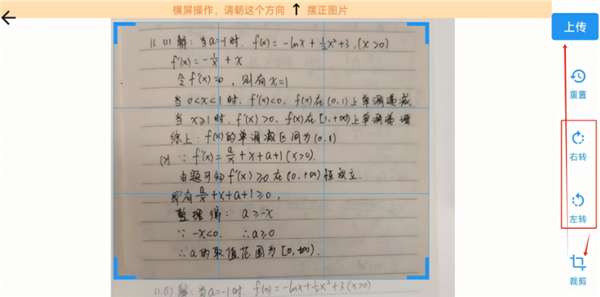 横屏操作，请朝这个方向 ↑ 摆正图片
上传
重置
右转
左转
裁剪
11. (1) 解：当a=-1时，f(x)=-lnx+½x²+3,(x>0)
f'(x)=-1/x+x
令f'(x)=0，则有x=1
当0<x<1时，f'(x)<0，f(x)在(0,1)上单调递减
当x≥1时，f'(x)>0，f(x)在[1,+∞)上单调递增
综上：f(x)的单调减区间为(0,1)
(2) ∵f'(x)=a/x+x+a+1(x>0)
由题可知f'(x)≥0在(0,+∞)恒成立
即有a/x+x+a+1≥0，
整理得：a≥-x
∵-x<0，∴a≥0
∴a的取值范围为[0,+∞).
11.(1)解：当a=-1时，f(x)=-lnx+½x²+3(x>0)